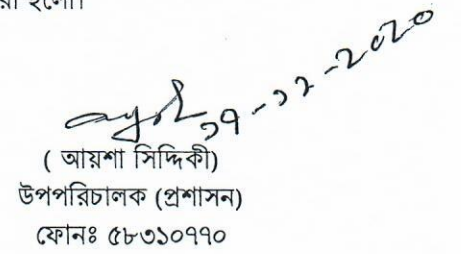 ১৭-১২-২০২০
( আয়শা সিদ্দিকী)
উপপরিচালক (প্রশাসন)
ফোনঃ ৫৮৩১০৭৭০